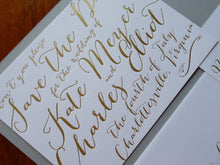 won't you please
Save the D
for the wedding of
Kate Meyer
and
Charles Elliot
the fourth of July
Charlottesville, Virginia